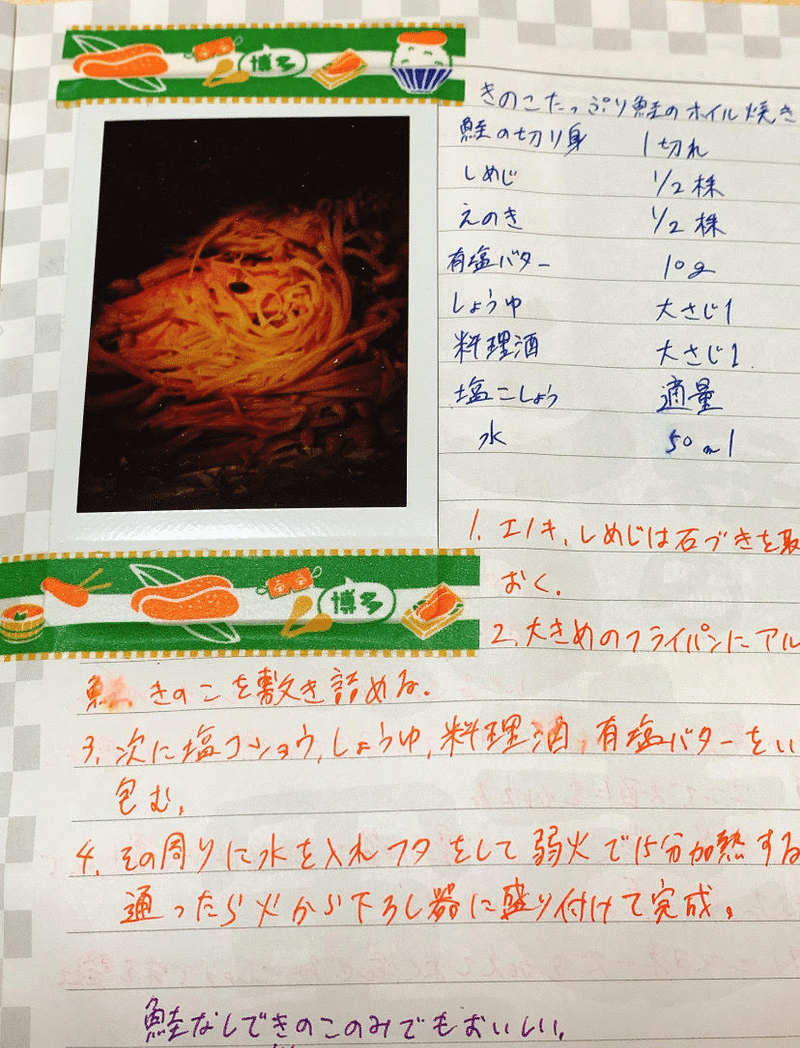 博多
きのこたっぷり鮭のホイル焼き
鮭の切り身 1切れ
しめじ 1/2株
えのき 1/2株
有塩バター 10g
しょうゆ 大さじ1
料理酒 大さじ1.
塩こしょう 適量
水 50ml
1. エノキ、しめじは石づきを取
おく.
博多
2. 大きめのフライパンにアル
きのこを敷き詰める.
3. 次に塩コショウ, しょうゆ, 料理酒, 有塩バターをい
包む.
4. その周りに水を入れフタをして弱火で15分加熱する
通ったら火から下ろし器に盛り付けて完成.
鮭なしできのこのみでもおいしい.